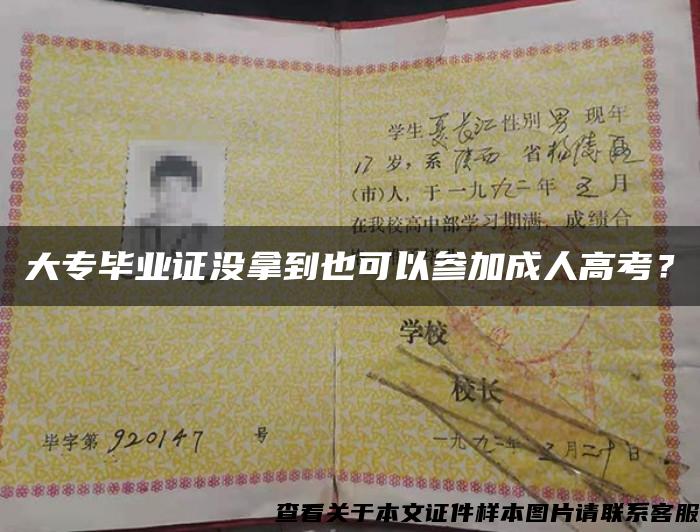 学生夏长江性别男 现年
17岁，系陕西 省
(市)人，于一九九二年 五月
在我校高中部学习期满，成绩合
大专毕业证没拿到也可以参加成人高考？
学校
校长
毕字第 920147 号
一九九二年 五月二十日
查看关于本文证件样本图片请联系客服